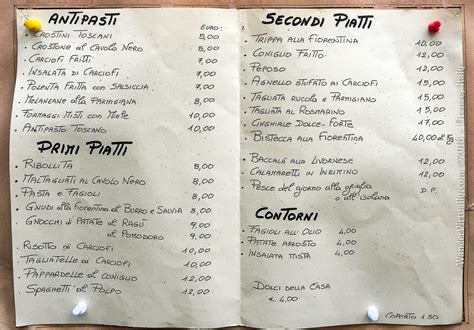 ANTIPASTI EURO:
• CROSTINI TOSCANI 5,00
• CROSTONE AL CAVOLO NERO 5,00
• CARCIOFI FRITTI 7,00
• INSALATA DI CARCIOFI 7,00
• POLENTA FRITTA CON SALSICCIA 7,00
• MELANZANE ALLA PARMIGIANA 8,00
• FORMAGGI MISTI CON MIELE 10,00
• ANTIPASTO TOSCANO 10,00
PRIMI PIATTI
• RIBOLLITA 8,00
• MALTAGLIATI AL CAVOLO NERO 8,00
• PASTA E FAGIOLI 8,00
• GNUDI ALLA FIORENTINA AL BURRO E SALVIA 8,00
• GNOCCHI DI PATATE AL RAGÙ
O AL POMODORO 9,00
• RISOTTO DI CARCIOFI 10,00
• TAGLIATELLE AI CARCIOFI 10,00
• PAPPARDELLE AL CONIGLIO 12,00
• SPAGHETTI AL POLPO 12,00
SECONDI PIATTI
• TRIPPA ALLA FIORENTINA 10,00
• CONIGLIO FRITTO 12,00
• PEPOSO 12,00
• AGNELLO STUFATO AI CARCIOFI 14,00
• TAGLIATA RUCOLA E PARMIGIANO 15,00
• TAGLIATA AL ROSMARINO 15,00
• CINGHIALE DOLCE-FORTE 17,00
• BISTECCA ALLA FIORENTINA 40,00
• BACCALÀ ALLA LIVORNESE 12,00
• CALAMARETTI IN INZIMINO 12,00
• PESCE DEL GIORNO ALLA GRIGLIA D.P.
O ALL'ISOLANA
CONTORNI
• FAGIOLI ALL'OLIO 4,00
• PATATE ARROSTO 4,00
• INSALATA MISTA 4,00
DOLCI DELLA CASA
€ 4,00
COPERTO 1.50